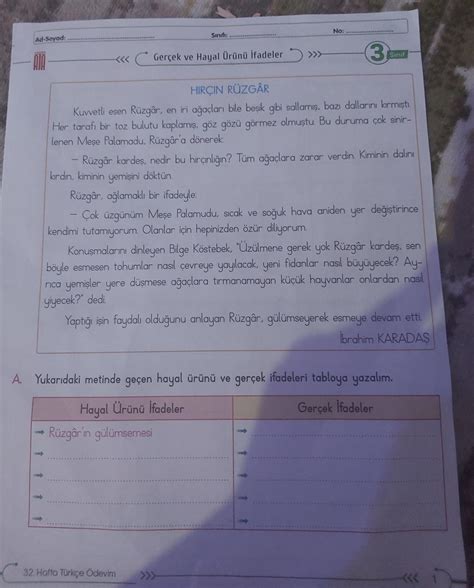 Ad-Soyad: Sınıfı: No:
Gerçek ve Hayal Ürünü İfadeler
3. Sınıf
HIRÇIN RÜZGÂR
Kuvvetli esen Rüzgâr, en iri ağaçları bile beşik gibi sallamış, bazı dallarını kırmıştı.
Her tarafı bir toz bulutu kaplamış, göz gözü görmez olmuştu. Bu duruma çok sinir-
lenen Meşe Palamudu, Rüzgâr'a dönerek:
— Rüzgâr kardeş, nedir bu hırçınlığın? Tüm ağaçlara zarar verdin. Kiminin dalını
kırdın, kiminin yemişini döktün.
Rüzgâr, ağlamaklı bir ifadeyle:
— Çok üzgünüm Meşe Palamudu, sıcak ve soğuk hava aniden yer değiştirince
kendimi tutamıyorum. Olanlar için hepinizden özür diliyorum.
Konuşmalarını dinleyen Bilge Köstebek, "Üzülmene gerek yok Rüzgâr kardeş, sen
böyle esmesen tohumlar nasıl çevreye yayılacak, yeni fidanlar nasıl büyüyecek? Ay-
rıca yemişler yere düşmese ağaçlara tırmanamayan küçük hayvanlar onlardan nasıl
yiyecek?" dedi.
Yaptığı işin faydalı olduğunu anlayan Rüzgâr, gülümseyerek esmeye devam etti.
İbrahim KARADAŞ
A. Yukarıdaki metinde geçen hayal ürünü ve gerçek ifadeleri tabloya yazalım.
Hayal Ürünü İfadeler
Gerçek İfadeler
Rüzgâr'ın gülümsemesi
32. Hafta Türkçe Ödevim
1